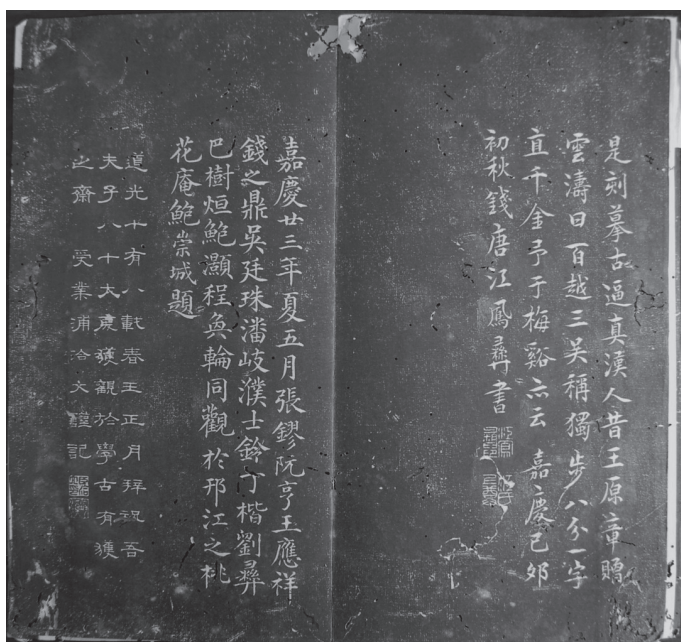 是刻摹古逼真漢人昔王原章贈
雲濤曰百越三吳稱獨步八分一字
直千金予于梅谿亦云 嘉慶己卯
初秋錢唐江鳳彝書
嘉慶廿三年夏五月張鏐阮亨王應祥
錢之鼎吳廷珠潘岐濮士銓丁楷劉彝
巴樹烜鮑灝程奐輪同觀於邗江之桃
花庵鮑崇城題
道光十有八載春王正月拜祝吾
夫子八十大慶獲觀於學古有獲
之齋 受業浦洽文謹記